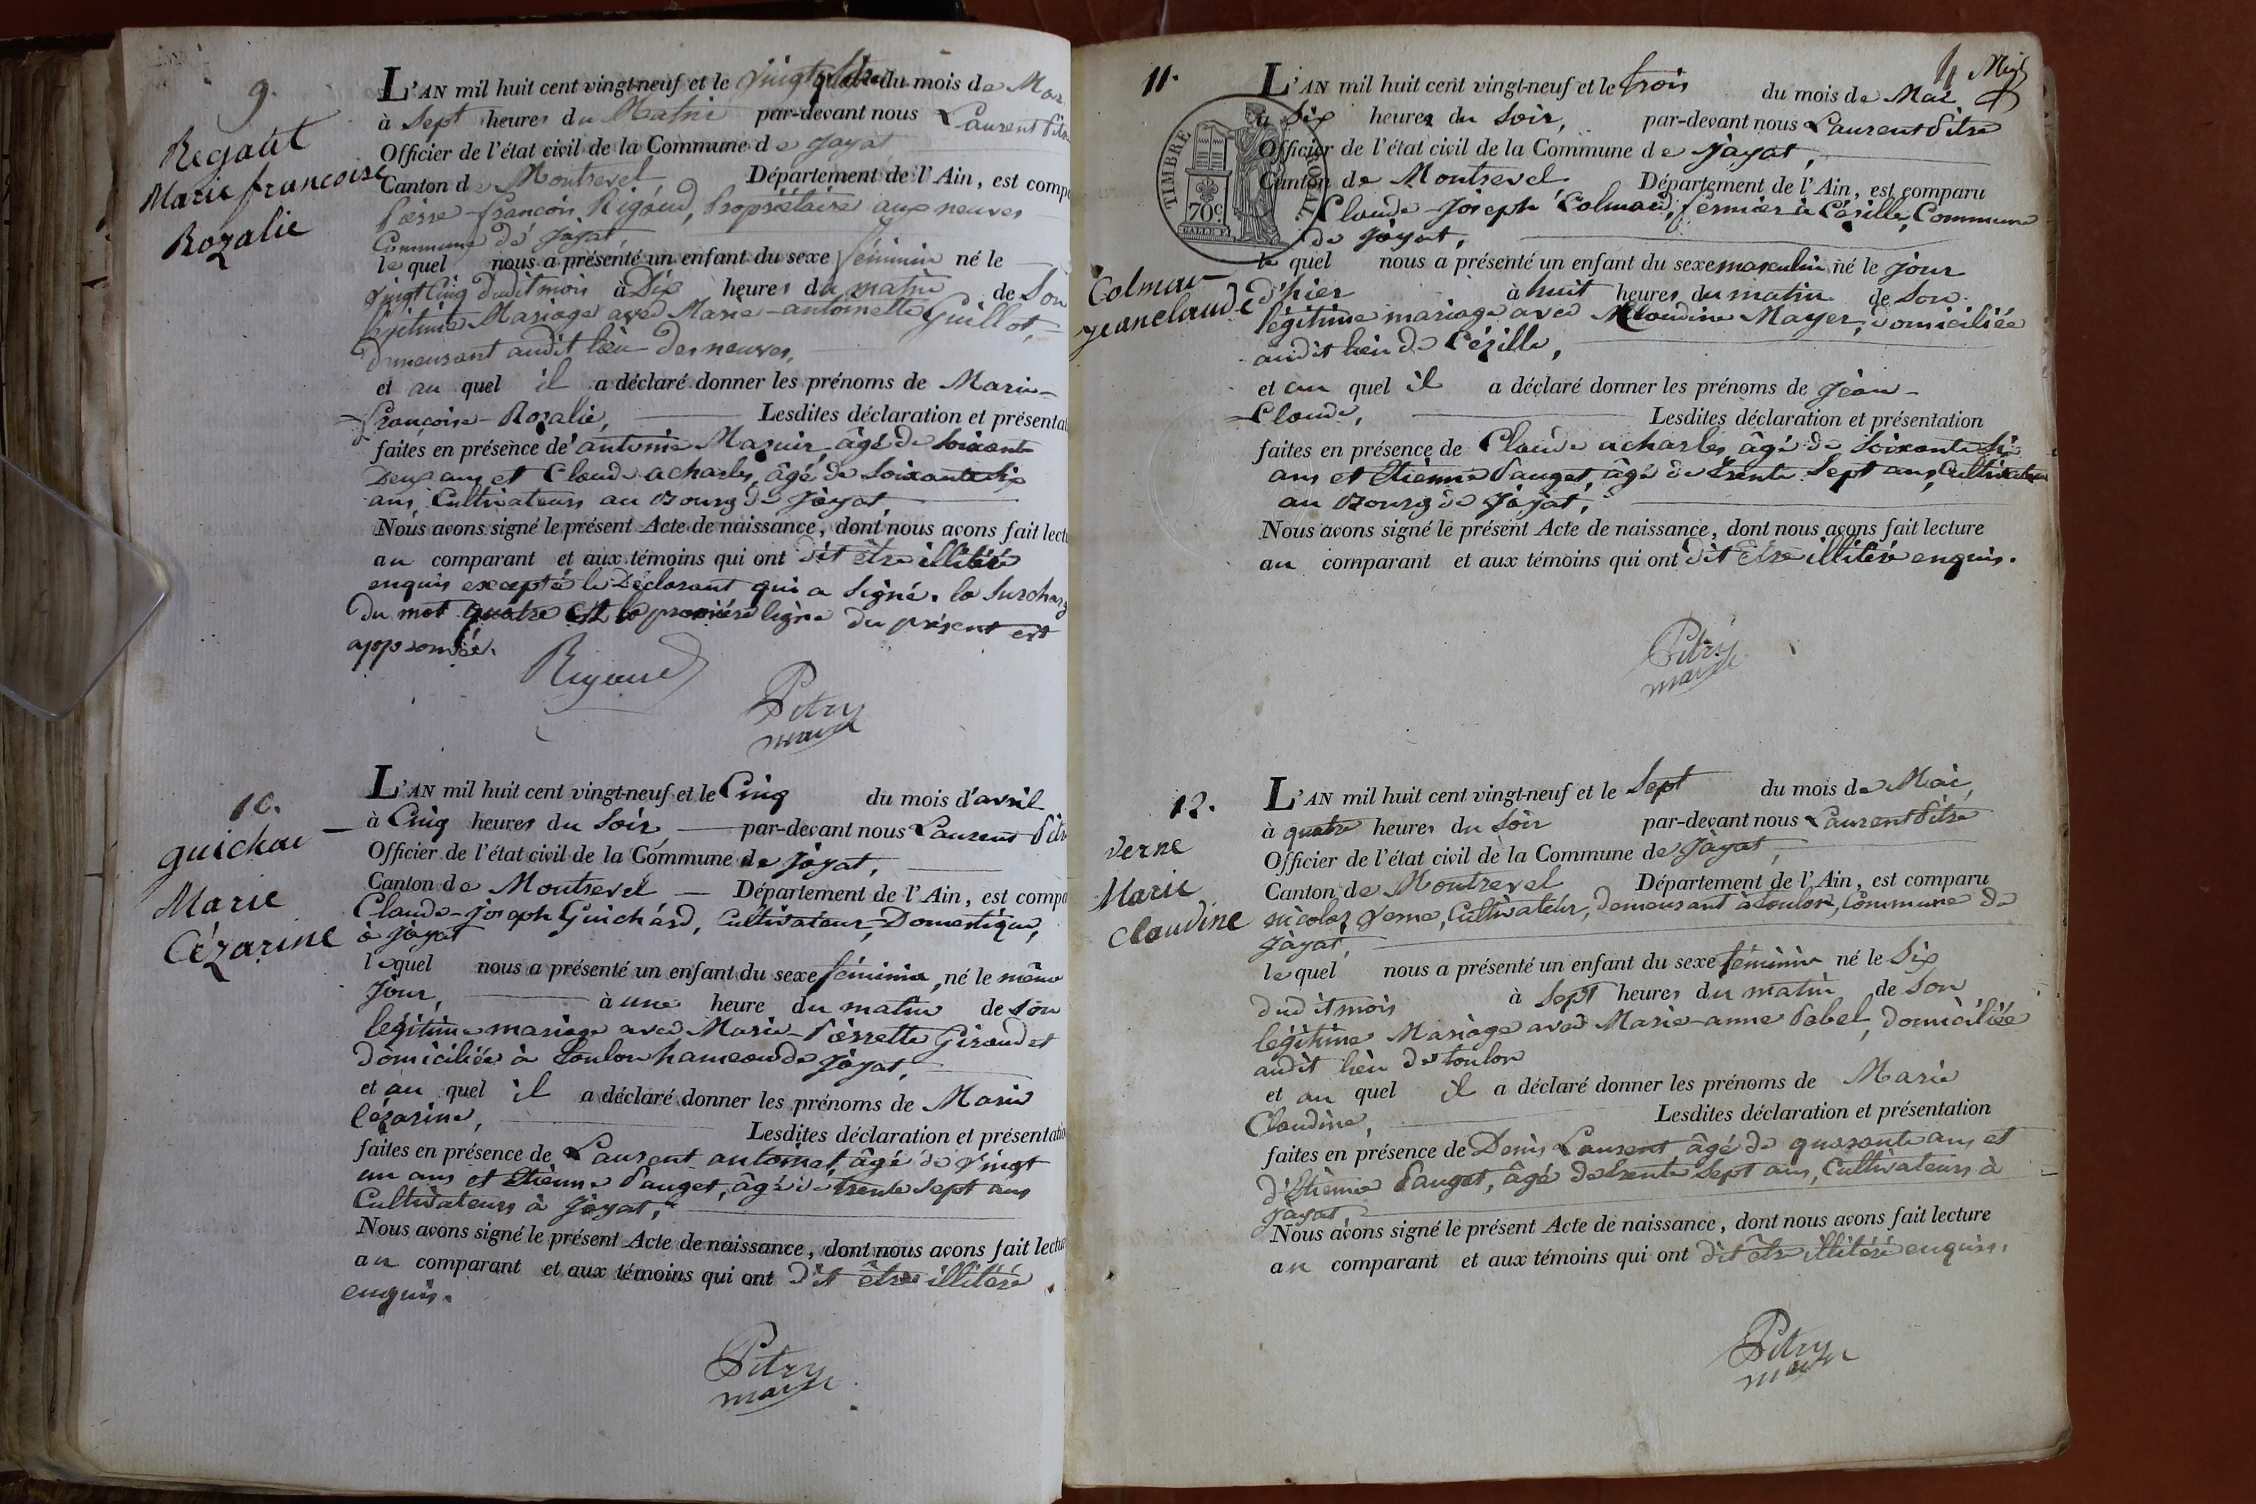 9.
Regaut
Marie francoise
Rozalie
L'AN mil huit cent vingt-neuf et le vingt quatre du mois de Mar
à Sept heures du Matin par-devant nous Laurent Pitr
Officier de l'état civil de la Commune de Jayat
Canton de Montrevel Département de l'Ain, est compa
Pierre-françois Rigaud, Propriétaire aux neuves
Commune de Jayat,
lequel nous a présenté un enfant du sexe féminin né le
vingt Cinq dudit mois à Dix heures du matin de Son
légitime Mariage avec Marie-antoinette Guillot,
demeurant audit lieu des neuves,
et au quel il a déclaré donner les prénoms de Marie-
françoise-Rozalie, Lesdites déclaration et présentat
faites en présence de antoine Maruir, âgé de Soixante
Deux ans et Claude acharles, âgé de Soixante Six
ans, Cultivateurs au Bourg de Jayat,
Nous avons signé le présent Acte de naissance, dont nous avons fait lectu
au comparant et aux témoins qui ont dit être illitéré
enquis excepté le Déclarant qui a Signé. la Surcharg
du mot quatre est la première ligne du présent est
approuvée.
Rigaud
Pitry
maire
10.
guichar
Marie
Cézarine
L'AN mil huit cent vingt-neuf et le Cinq du mois d'avril
à Cinq heures du Soir, par-devant nous Laurent Pitr
Officier de l'état civil de la Commune de Jayat,
Canton de Montrevel Département de l'Ain, est compa
Claude-joseph Guichard, Cultivateur, Domestique,
à Jayat
lequel nous a présenté un enfant du sexe féminin, né le même
Jour, à une heure du matin de Son
légitime mariage avec Marie-Pierrette Giraudet
domiciliée à Toulon hameau de Jayat,
et au quel il a déclaré donner les prénoms de Marie
Cézarine, Lesdites déclaration et présentatio
faites en présence de Laurent antoinet, âgé de vingt
un ans et Etienne Pauget, âgé de trente Sept ans
Cultivateurs à Jayat,
Nous avons signé le présent Acte de naissance, dont nous avons fait lectu
au comparant et aux témoins qui ont dit être illitéré
enquis.
Pitry
maire
11.
TIMBRE ROYAL
70c
Colmar
Jean claude
L'AN mil huit cent vingt-neuf et le trois du mois de Mai
à Six heures du Soir, par-devant nous Laurent Pitre
Officier de l'état civil de la Commune de Jayat,
Canton de Montrevel Département de l'Ain, est comparu
Claude-Joseph Colmard, fermier à Cézille, Commune
de Jayat,
le quel nous a présenté un enfant du sexe masculin né le jour
d'hier à huit heures du matin de Son
légitime mariage avec Claudine Mayer, domiciliée
audit lieu de Cézille,
et au quel il a déclaré donner les prénoms de Jean-
Claude, Lesdites déclaration et présentation
faites en présence de Claude acharles, âgé de Soixante Six
ans et Etienne Pauget, âgé de trente Sept ans, Cultivateurs
au Bourg de Jayat,
Nous avons signé le présent Acte de naissance, dont nous avons fait lecture
au comparant et aux témoins qui ont dit être illitéré enquis.
Pitry
maire
12.
Verne
Marie
Claudine
L'AN mil huit cent vingt-neuf et le Sept du mois de Mai,
à quatre heures du Soir par-devant nous Laurent Pitre
Officier de l'état civil de la Commune de Jayat,
Canton de Montrevel Département de l'Ain, est comparu
nicolas Verne, Cultivateur, demeurant à Toulon, Commune de
Jayat,
lequel nous a présenté un enfant du sexe féminin né le Six
dudit mois à Sept heures du matin de Son
légitime Mariage avec Marie-anne Pabel, domiciliée
audit lieu de toulon
et au quel il a déclaré donner les prénoms de Marie
Claudine, Lesdites déclaration et présentation
faites en présence de Denis Laurent âgé de quarante ans et
d'Etienne Pauget, âgé de trente Sept ans, Cultivateurs à
Jayat
Nous avons signé le présent Acte de naissance, dont nous avons fait lecture
au comparant et aux témoins qui ont dit être illitéré enquis.
Pitry
maire